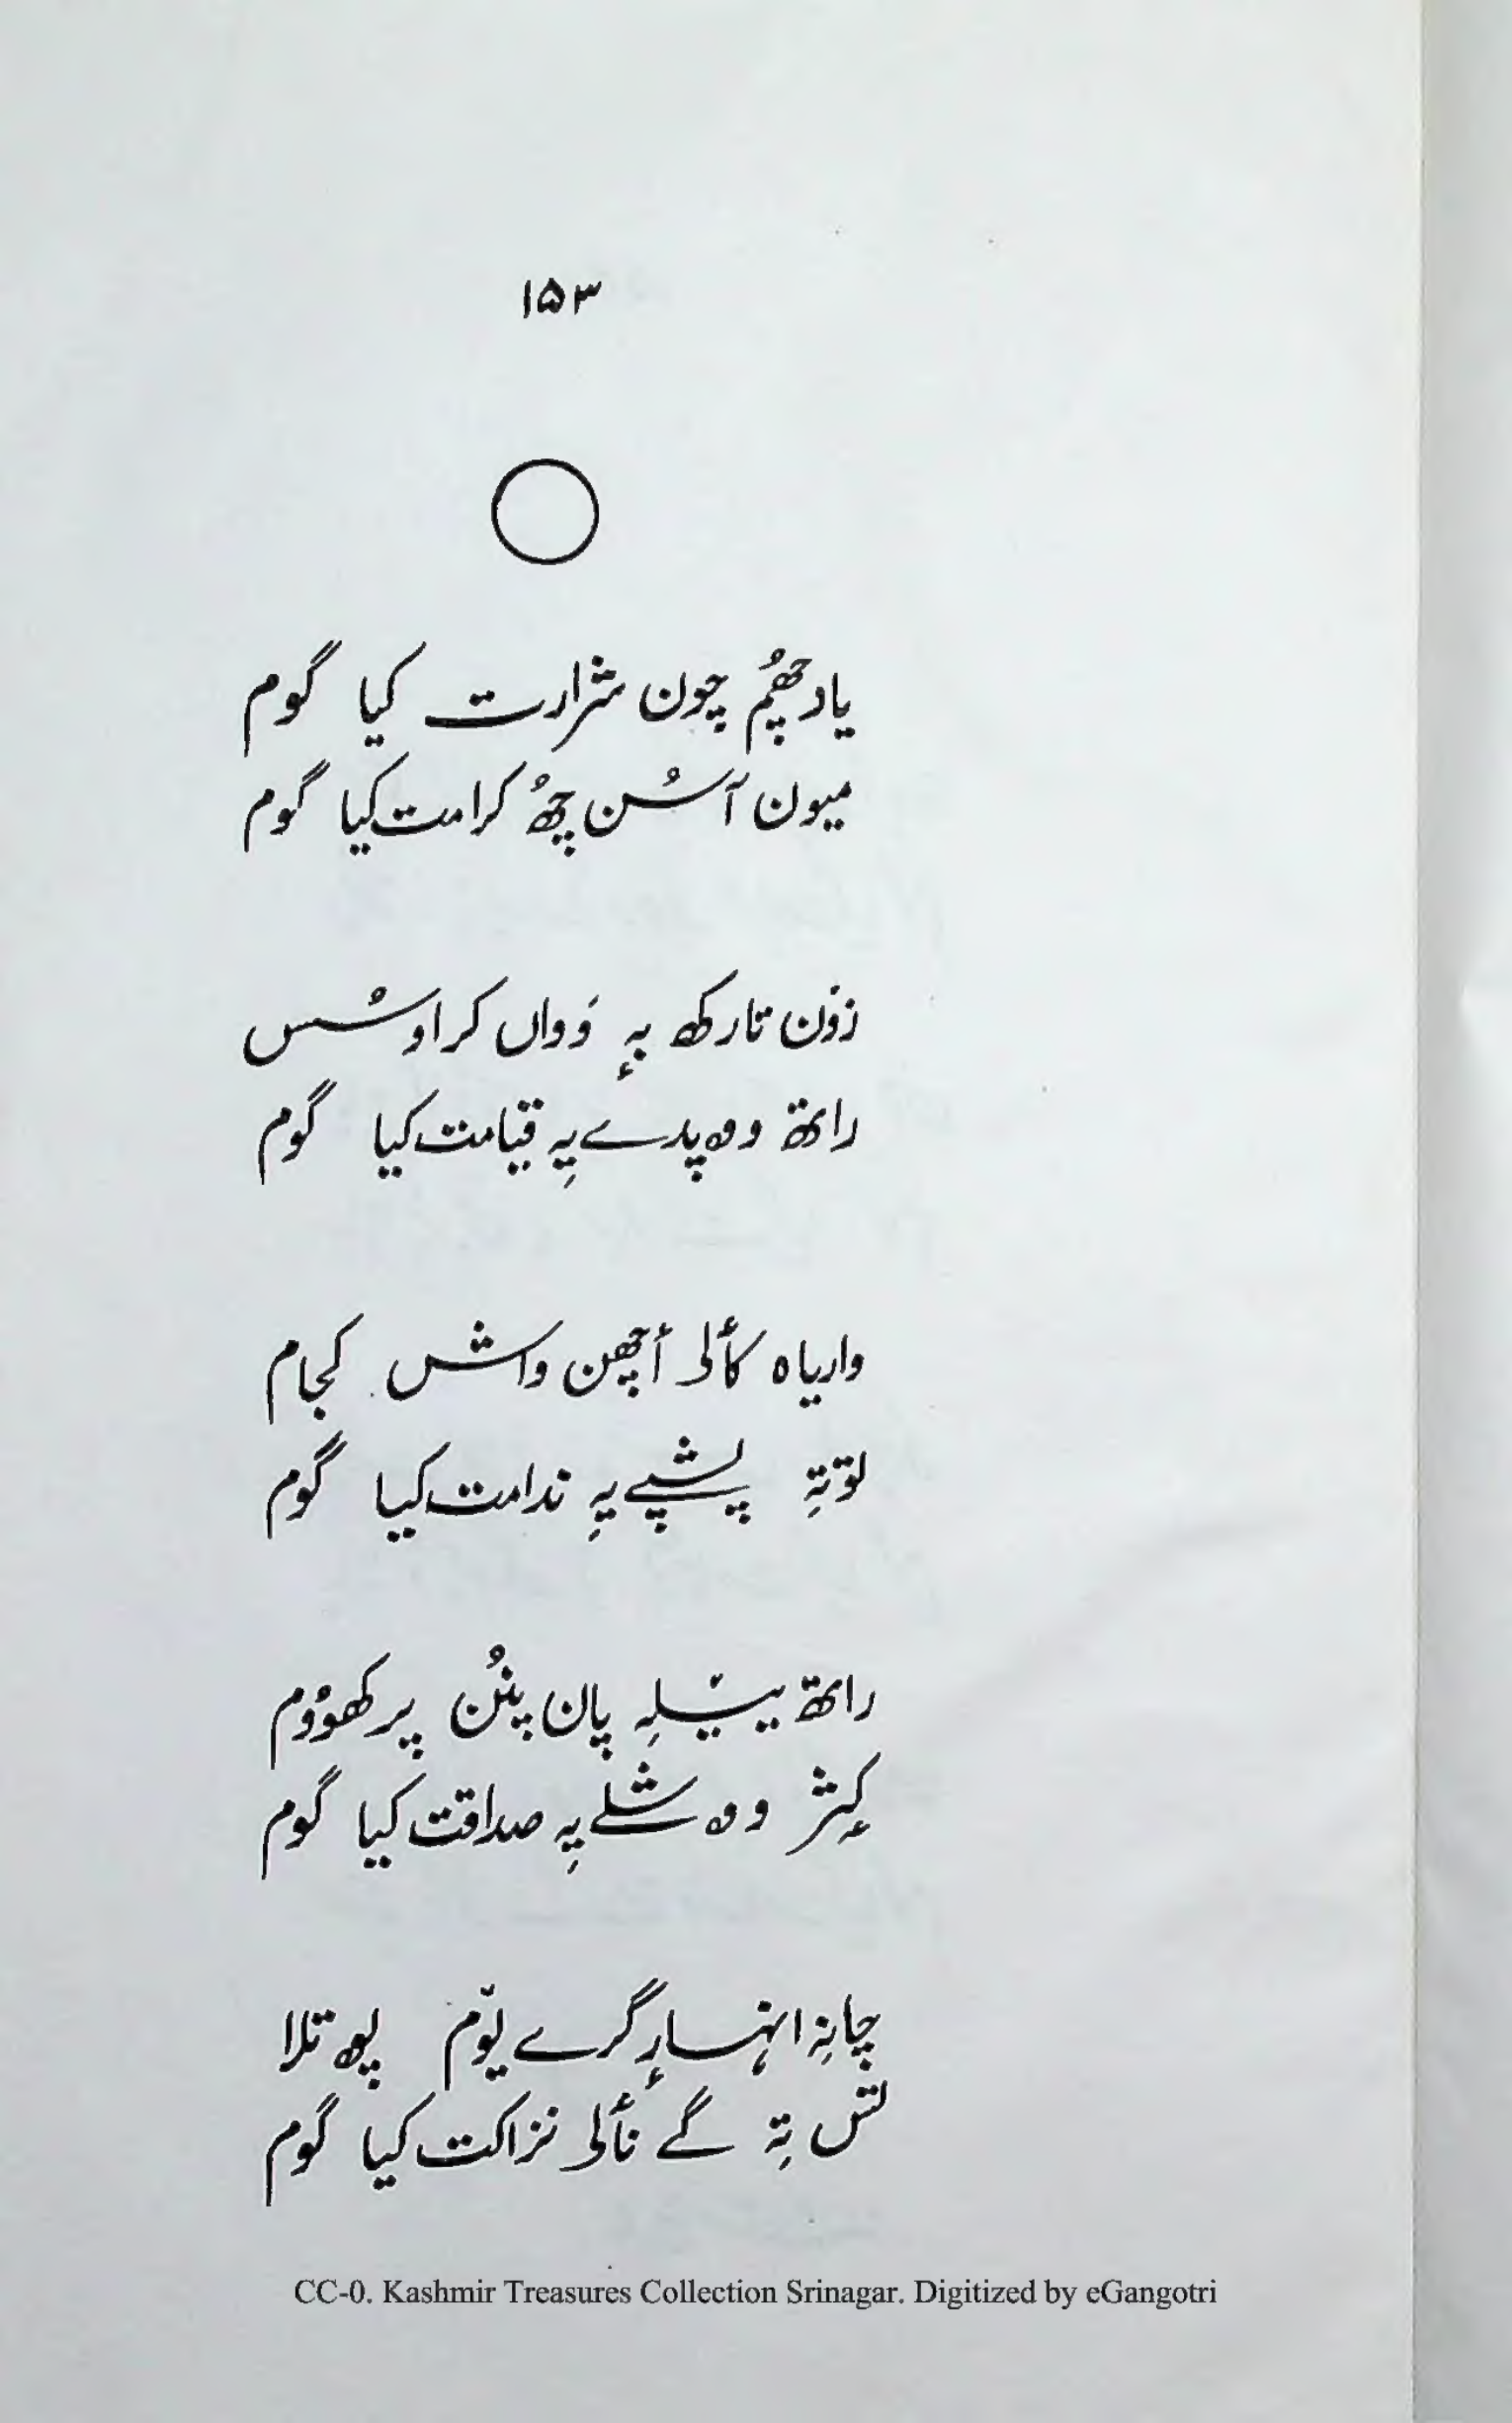 ۱۵۳
یاد چھُم چون شرارت کیا گوم
میون آسُن چھُ کرامت کیا گوم
زوٗن تارکھ بہٕ وَواں کراوسُس
راتھ وہ پدے یہِ قیامت کیا گوم
واریاہ کألی أچھن واش کجام
لوٚتہِ پشپے یہِ ندامت کیا گوم
راتھ ییٚلہِ پان پنُن پرکھووُم
کٕژ وہ شلے یہِ صداقت کیا گوم
چانہِ انہارٕ گرے یوٚم پھ تلا
تس تہِ گے نألی نزاکت کیا گوم
CC-0. Kashmir Treasures Collection Srinagar. Digitized by eGangotri